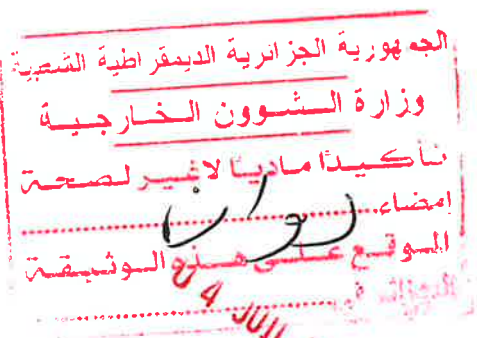 الجمهورية الجزائرية الديمقراطية الشعبية
وزارة الشؤون الخارجية
تأكيدا ماديا لا غير لصحة
إمضاء
الموقع على هذه الوثيقة
الجزائر في
04 JUIL